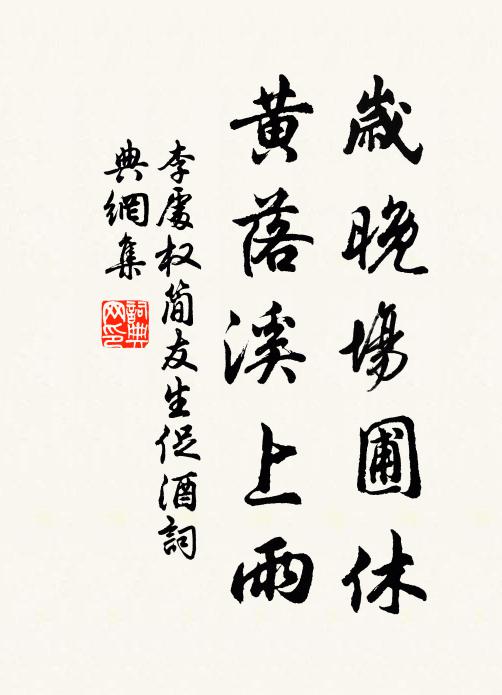 歲晚場圃休
黃落溪上雨
李處权简友生促酒詞
典網集
詞典
网印